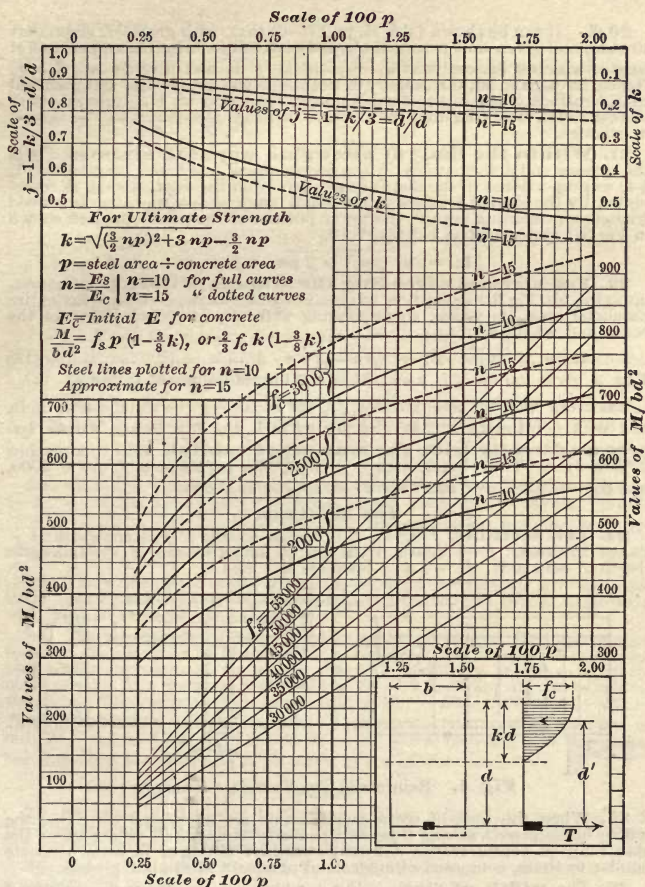 Scale of 100 p
0 0.25 0.50 0.75 1.00 1.25 1.50 1.75 2.00
Scale of
j=1-k/3=d'/d
1.0
0.9
0.8
0.7
0.6
0.5
Scale of k
0.1
0.2
0.3
0.4
0.5
n=10
Values of j=1-k/3=d'/d
n=15
n=10
Values of k
n=15
For Ultimate Strength
k=√(3/2 np)²+3 np-3/2 np
p=steel area÷concrete area
n=Es/Ec | n=10 for full curves
n=15 “ dotted curves
Ec=Initial E for concrete
M/bd²=fs p (1-3/8 k), or 2/3 fc k (1-3/8 k)
Steel lines plotted for n=10
Approximate for n=15
n=15
n=10
n=15
n=10
n=15
n=10
fc=3000
2500
2000
fs=55000
50000
45000
40000
35000
30000
Values of M/bd²
700
600
500
400
300
200
100
0
Values of M/bd²
900
800
700
600
500
400
300
Scale of 100 p
1.25 1.50 1.75 2.00
b
fc
kd
d
d'
T
0 0.25 0.50 0.75 1.00
Scale of 100 p